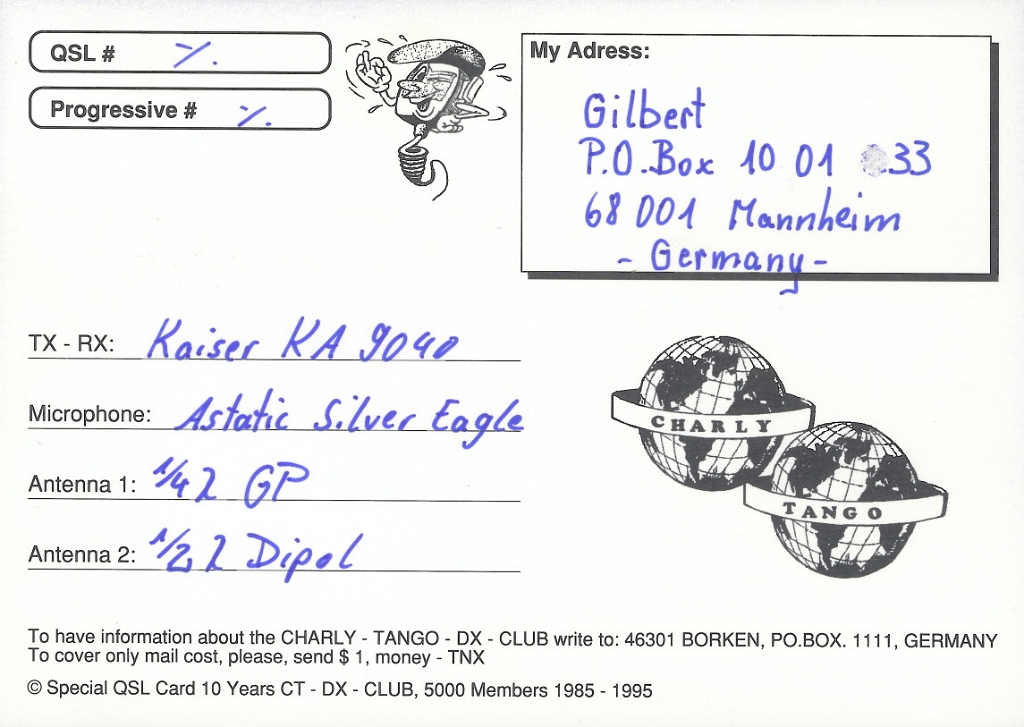 QSL # ⁒
Progressive # ⁒
My Adress:
Gilbert
P.O.Box 10 01 33
68 001 Mannheim
- Germany -
TX - RX: Kaiser KA 9040
Microphone: Astatic Silver Eagle
Antenna 1: 1/4 λ GP
Antenna 2: 1/2 λ Dipol
CHARLY
TANGO
To have information about the CHARLY - TANGO - DX - CLUB write to: 46301 BORKEN, PO.BOX. 1111, GERMANY
To cover only mail cost, please, send $ 1, money - TNX
© Special QSL Card 10 Years CT - DX - CLUB, 5000 Members 1985 - 1995